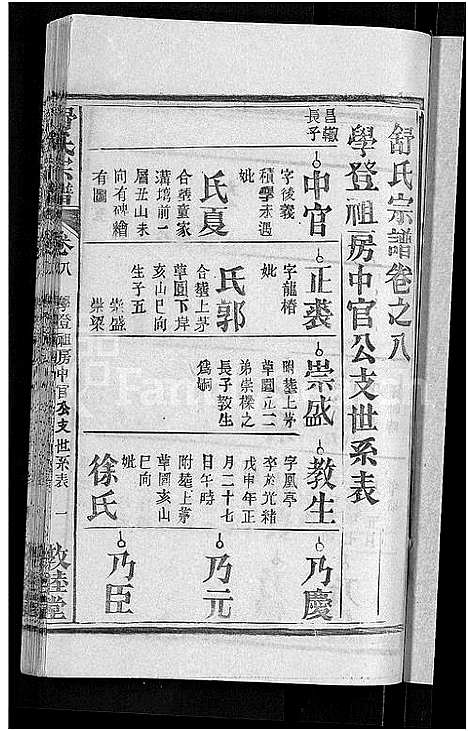 舒氏宗譜卷之八
學登祖房中官公支世系表
昌轍
長子
中官
字後義
積學未遇
妣
夏氏
合塟童家
溝塆前一
層丑山未
向有碑繪
有圖
正裘
字龍椿
妣
郭氏
合塟上茅
草園下岸
亥山巳向
生子五
崇盛
崇梁
崇盛
附塟上茅
草園立三
弟崇樑之
長子敎生
爲嗣
教生
字風亭
卒於光緒
戊申年正
月二十七
日午時
附塟上茅
草園亥山
巳向
妣
徐氏
乃慶
乃元
乃臣
舒氏宗譜
卷八
學登祖房中官公支世系表
一
敦睦堂